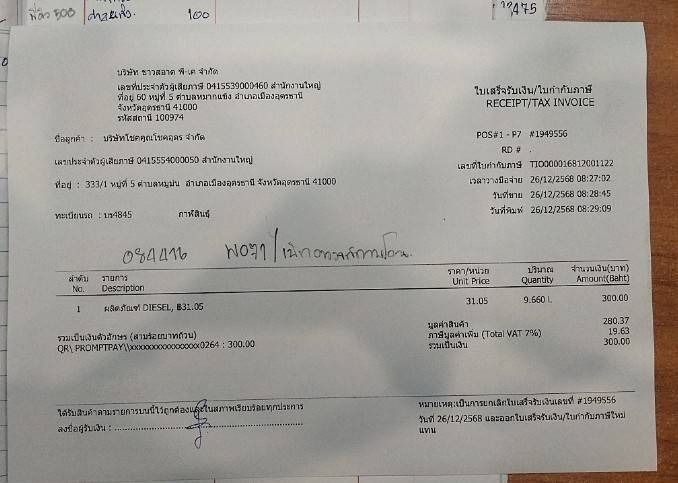 100
475
บริษัท ชาวสอาด พี-เค จำกัด
เลขที่ประจำตัวผู้เสียภาษี 0415539000460 สำนักงานใหญ่
ที่อยู่ 60 หมู่ที่ 5 ตำบลหมากแข้ง อำเภอเมืองอุดรธานี
จังหวัดอุดรธานี 41000
รหัสสถานี 100974
ใบเสร็จรับเงิน/ใบกำกับภาษี
RECEIPT/TAX INVOICE
ชื่อลูกค้า : บริษัทโชคคูณโชคอุดร จำกัด
POS#1 - P7 #1949556
RD # .
เลขประจำตัวผู้เสียภาษี 0415554000050 สำนักงานใหญ่
เลขที่ใบกำกับภาษี TIO000016812001122
เวลาวางมือจ่าย 26/12/2568 08:27:02
ที่อยู่ : 333/1 หมู่ที่ 5 ตำบลหมูม่น อำเภอเมืองอุดรธานี จังหวัดอุดรธานี 41000
วันที่ขาย 26/12/2568 08:28:45
วันที่พิมพ์ 26/12/2568 08:29:09
ทะเบียนรถ : บท4845 กาฬสินธุ์
084416
ลำดับ รายการ ราคา/หน่วย ปริมาณ จำนวนเงิน(บาท)
No. Description Unit Price Quantity Amount(Baht)
1 ผลิตภัณฑ์ DIESEL, ฿31.05 31.05 9.660 L 300.00
มูลค่าสินค้า 280.37
รวมเป็นเงินตัวอักษร (สามร้อยบาทถ้วน)
ภาษีมูลค่าเพิ่ม (Total VAT 7%) 19.63
QR\ PROMPTPAY\\xxxxxxxxxxxxxxxx0264 : 300.00
รวมเป็นเงิน 300.00
ได้รับสินค้าตามรายการบนนี้ไว้ถูกต้องและในสภาพเรียบร้อยทุกประการ
หมายเหตุ:เป็นการยกเลิกใบเสร็จรับเงินเลขที่ #1949556
ลงชื่อผู้รับเงิน :
วันที่ 26/12/2568 และออกใบเสร็จรับเงิน/ใบกำกับภาษีใหม่
แทน